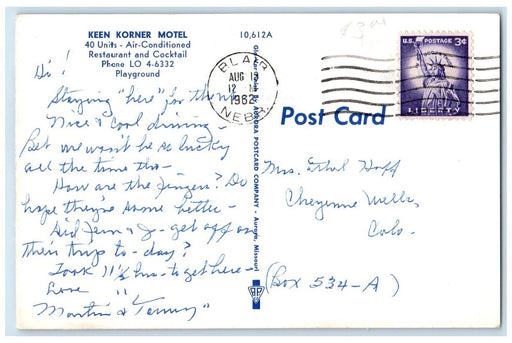 KEEN KORNER MOTEL
40 Units - Air-Conditioned
Restaurant and Cocktail
Phone LO 4-6332
Playground
10,612A
BLAIR
AUG 13
12 M
1962
NEBR.
U.S. POSTAGE 3¢
LIBERTY
Post Card
AURORA POSTCARD COMPANY - Aurora, Missouri
Hi!
Staying "here" for the nite
Nice & cool driving -
Bet we won't be so lucky
all the time tho -
How are the fingers? Do
hope they're some better -
Did & J- get off on
their trip to-day?
Took 11½ hrs. to get here -
Love
Martin &
Mrs. Ethel Hoff
Cheyenne Wells,
Colo.
(Box 534-A)